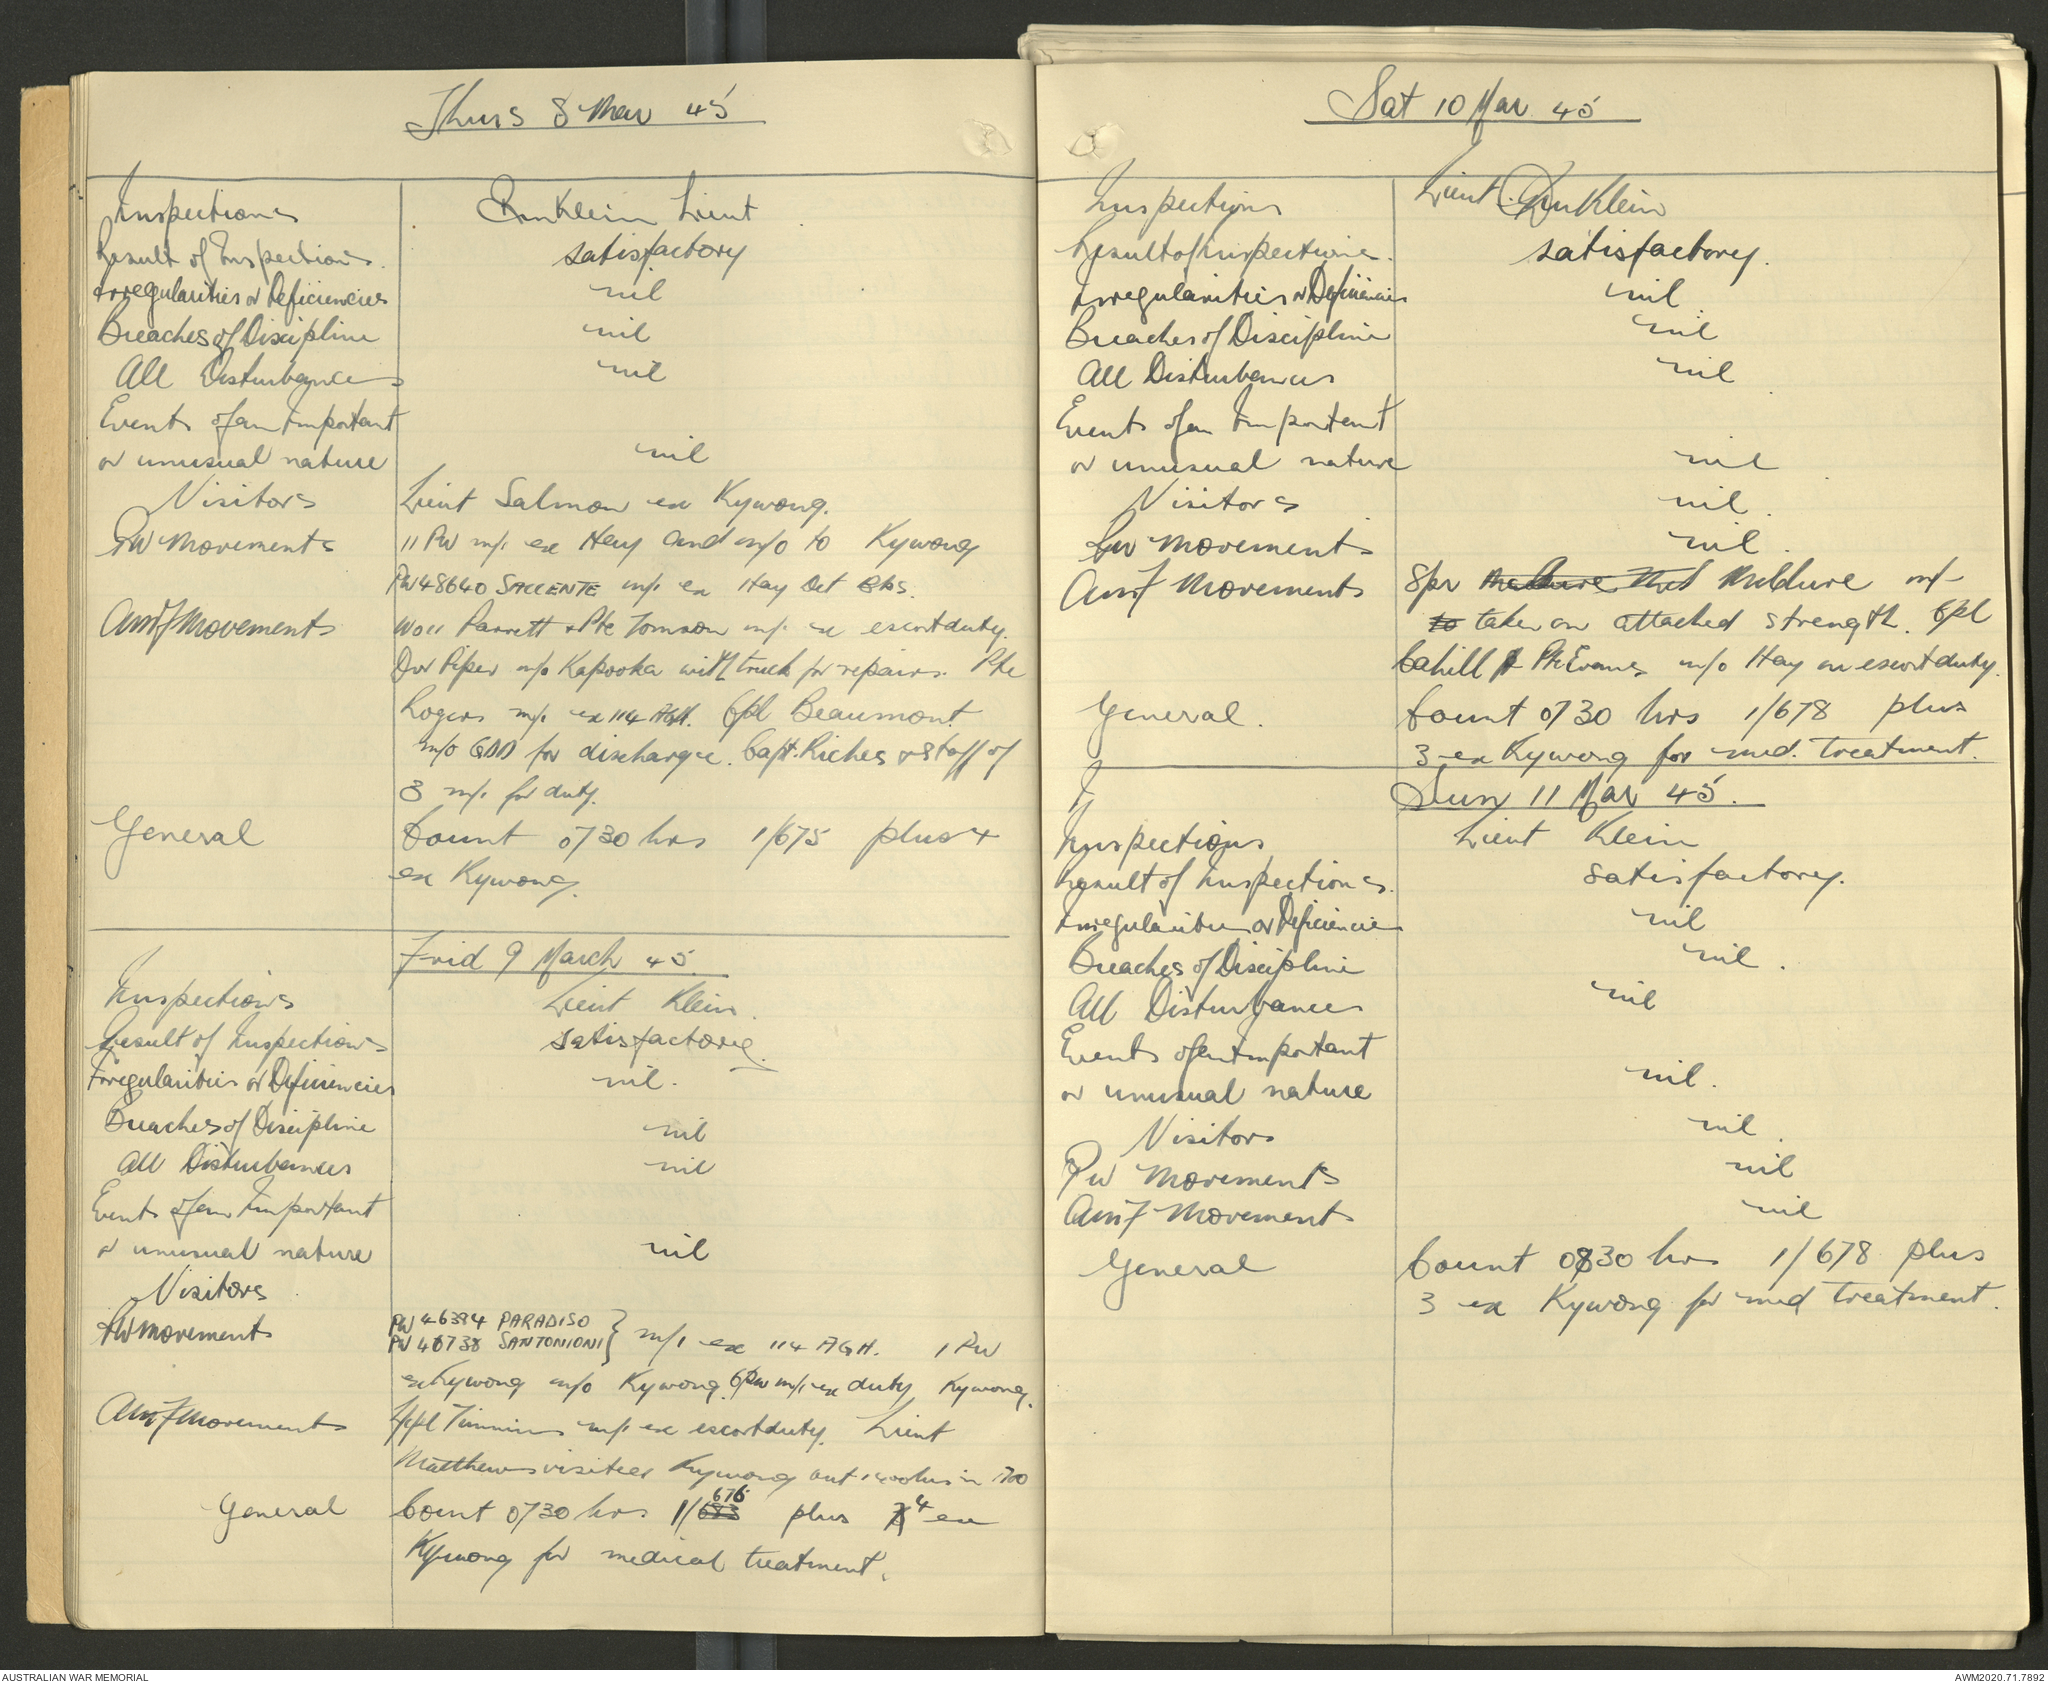 Thurs 8 Mar 45
Inspections Klein Lieut
Result of Inspections. satisfactory
Irregularities or Deficiencies nil
Breaches of Discipline nil
All Disturbances nil
Events of an Important
or unusual nature nil
Visitors Lieut Salmon ex Kywong.
PW Movements 11 PW m/i ex Hay and m/o to Kywong
PW 48640 SACCENTE m/i ex Hay Det Bks.
AMF Movements WO11 Parrett & Pte Tomson m/i ex escort duty.
Dvr Piper m/o Kapooka with truck for repairs. Pte
Rogers m/i ex 114 AGH. Cpl Beaumont
m/o GDD for discharge. Capt. Riches & staff of
3 m/i for duty.
General Count 0730 hrs 1/675 plus 4
ex Kywong.
Frid 9 March 45
Inspections Lieut Klein.
Result of Inspections satisfactory.
Irregularities or Deficiencies nil.
Breaches of Discipline nil
All Disturbances nil
Events of an Important
or unusual nature nil
Visitors
PW Movements PW 46394 PARADISO
PW 46738 SANTONIONI } m/i ex 114 AGH. 1 PW
ex Kywong m/o Kywong. 6 PW m/i ex duty Kywong.
AMF Movements L/Cpl Timmins m/i ex escort duty. Lieut
Matthews visited Kywong out 1400 hrs in 1700
General Count 0730 hrs 1/683 676 plus 4 ex
Kywong for medical treatment.
Sat 10 Mar 45
Inspections Lieut. Klein
Result of Inspections. satisfactory.
Irregularities or Deficiencies nil
Breaches of Discipline nil
All Disturbances nil
Events of an Important
or unusual nature nil
Visitors nil.
PW Movements nil.
AMF Movements Spr Mildure m/i
to taken on attached strength. Cpl
Cahill & Pte Evans m/o Hay on escort duty.
General. Count 0730 hrs 1/678 plus
3 ex Kywong for med. treatment.
Sun 11 Mar 45.
Inspections Lieut Klein
Result of Inspections. satisfactory.
Irregularities or Deficiencies nil
Breaches of Discipline nil.
All Disturbances nil
Events of an Important
or unusual nature nil.
Visitors nil.
PW Movements nil
AMF Movements nil
General Count 0830 hrs 1/678 plus
3 ex Kywong for med treatment.
AUSTRALIAN WAR MEMORIAL AWM2020.71.7892